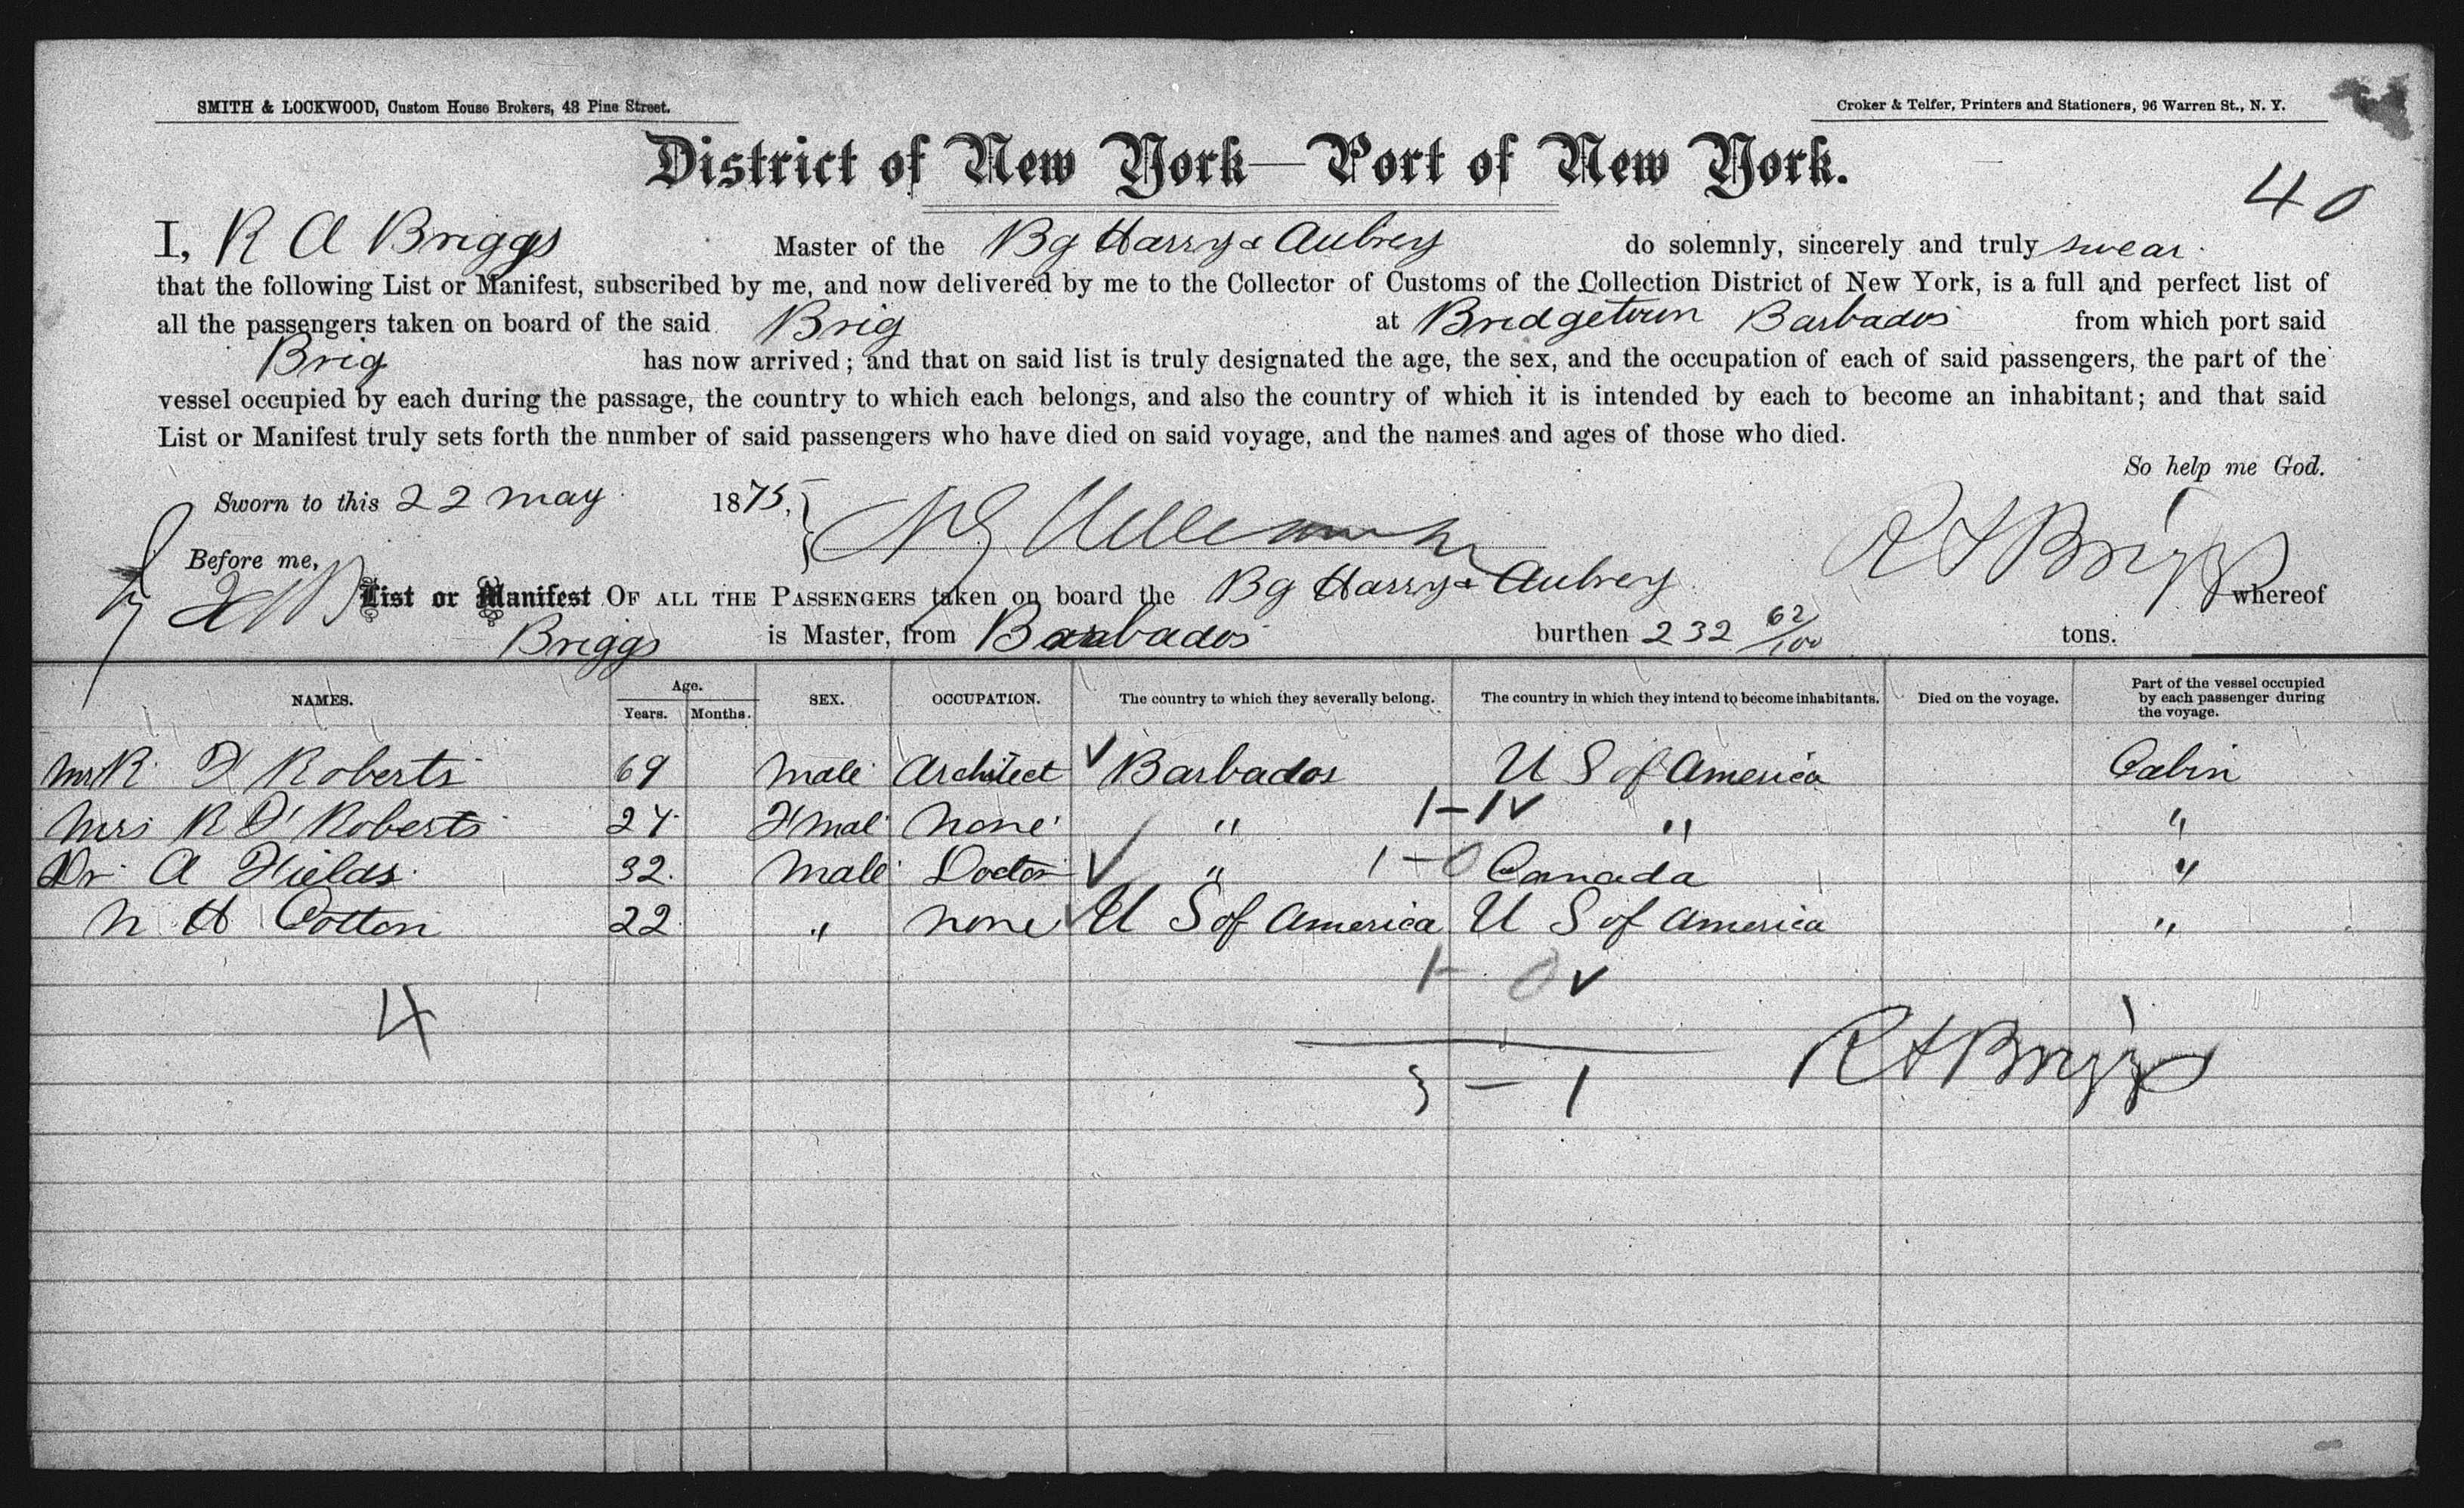 SMITH & LOCKWOOD, Custom House Brokers, 48 Pine Street.
Croker & Telfer, Printers and Stationers, 96 Warren St., N. Y.
District of New York—Port of New York.
40
I, R A Briggs Master of the Bg Harry & Aubrey do solemnly, sincerely and truly swear
that the following List or Manifest, subscribed by me, and now delivered by me to the Collector of Customs of the Collection District of New York, is a full and perfect list of
all the passengers taken on board of the said Brig at Bridgetown Barbados from which port said
Brig has now arrived; and that on said list is truly designated the age, the sex, and the occupation of each of said passengers, the part of the
vessel occupied by each during the passage, the country to which each belongs, and also the country of which it is intended by each to become an inhabitant; and that said
List or Manifest truly sets forth the number of said passengers who have died on said voyage, and the names and ages of those who died.
So help me God.
Sworn to this 22 may 1875,
R A Briggs
Before me,
List or Manifest OF ALL THE PASSENGERS taken on board the Bg Harry & Aubrey whereof
Briggs is Master, from Barbados burthen 232 62/100 tons.
NAMES. Age. Years. Months. SEX. OCCUPATION. The country to which they severally belong. The country in which they intend to become inhabitants. Died on the voyage. Part of the vessel occupied by each passenger during the voyage.
Mr R F Roberts 69 Male Architect ✓ Barbados U S of America Cabin
Mrs R F Roberts 24 Fmal None ✓ " 1-1✓ " "
Dr A Fields 32 Male Doctor ✓ " 1-0 Canada "
N H Cotton 22 " none ✓ U S of America U S of America "
1- 0✓
4
3 — 1
R A Briggs